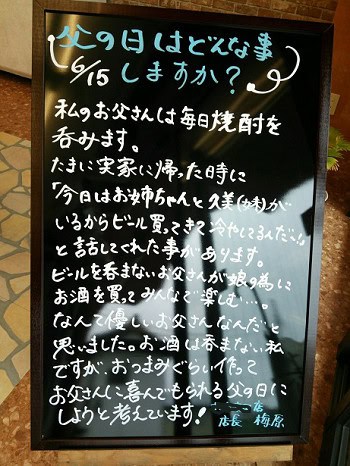 父の日はどんな事
6/15 しますか?
私のお父さんは毎日焼酎を
呑みます。
たまに実家に帰った時に
「今日はお姉ちゃんと久美(妹)が
いるからビール買ってきて冷やしてるんだ〜」
と話してくれた事があります。
ビールを呑まないお父さんが娘の為に
お酒を買ってみんなで楽しむ…。
なんて優しいお父さんなんだと
思いました。お酒は呑まない私
ですが、おつまみぐらい作って
お父さんに喜んでもらえる父の日に
しようと考えています!
店
店長 梅原